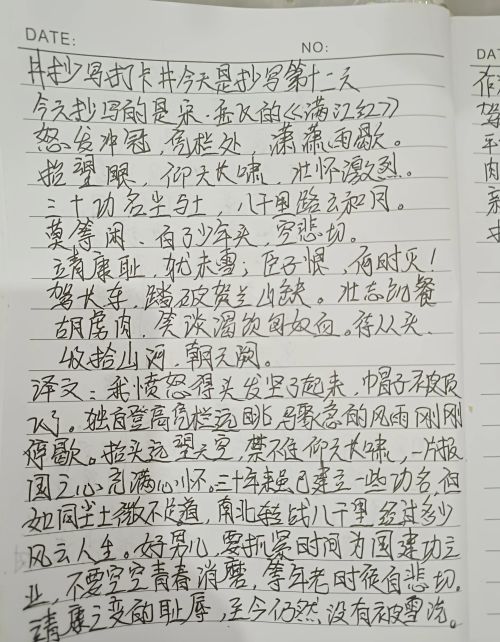 DATE:
NO:
#抄写打卡#今天是抄写第十二天
今天抄写的是宋·岳飞的《满江红》
怒发冲冠,凭栏处,潇潇雨歇。
抬望眼,仰天长啸,壮怀激烈。
三十功名尘与土,八千里路云和月。
莫等闲、白了少年头,空悲切。
靖康耻,犹未雪;臣子恨,何时灭!
驾长车,踏破贺兰山缺。壮志饥餐
胡虏肉,笑谈渴饮匈奴血。待从头、
收拾山河,朝天阙。
译文:我愤怒得头发竖了起来,帽子被顶
飞了。独自登高凭栏远眺,骤急的风雨刚刚
停歇。抬头远望天空,禁不住仰天长啸,一片报
国之心充满心怀。三十年来虽已建立一些功名,但
如同尘土微不足道,南北转战八千里经过多少
风云人生。好男儿,要抓紧时间为国建功立
业,不要空空青春消磨,等年老时徒自悲切。
靖康之变的耻辱,至今仍然没有被雪洗。
DA